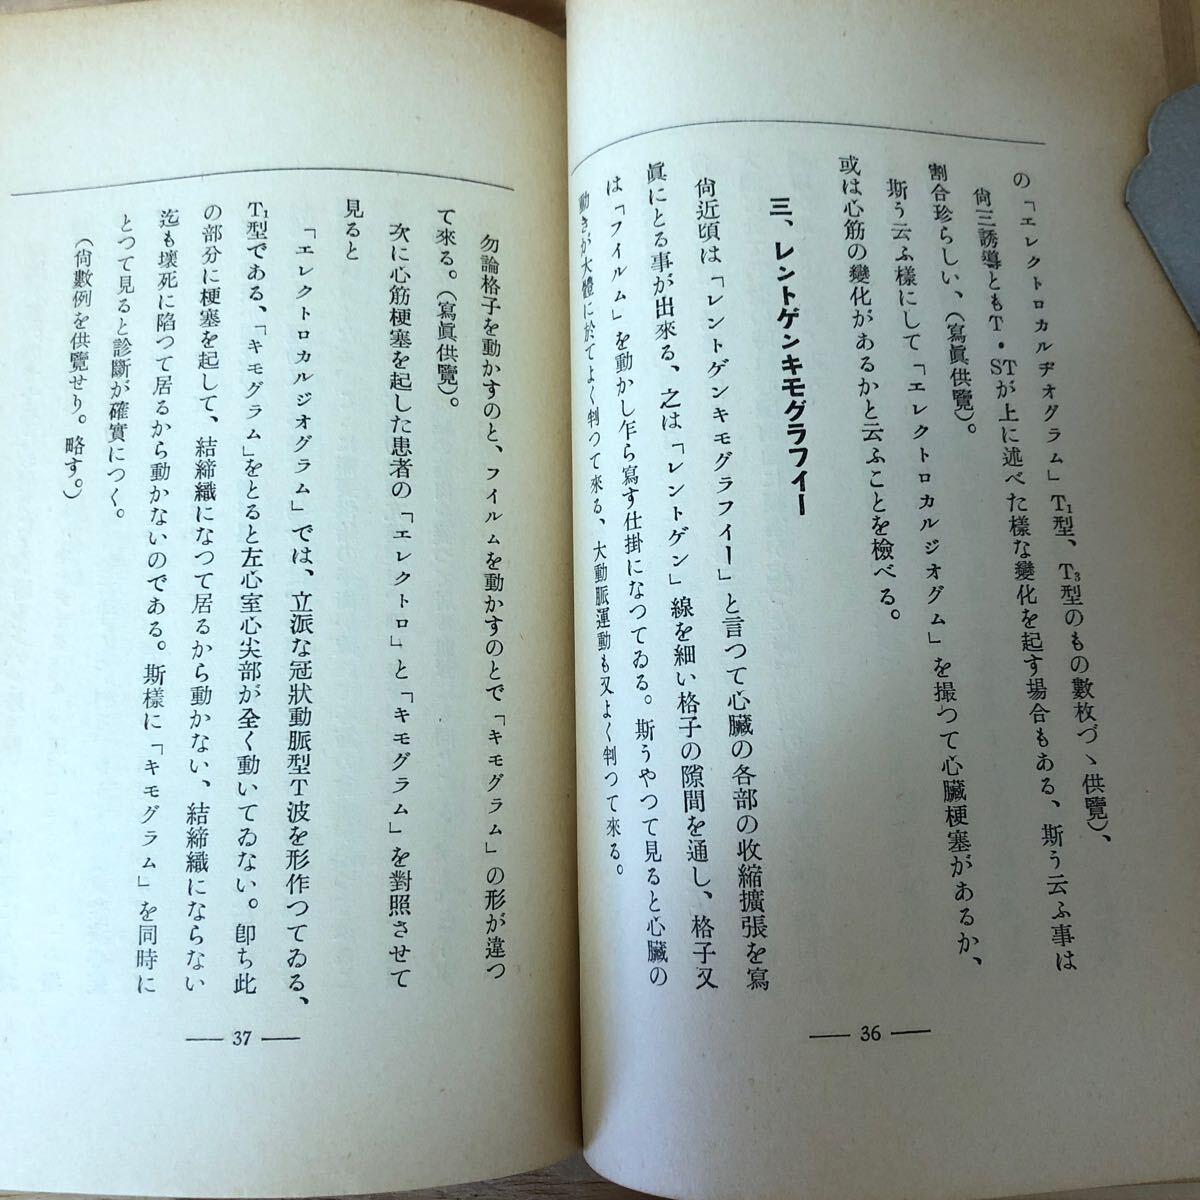 の「エレクトロカルヂオグラム」T₁型、T₃型のもの數枚づゝ供覽)、
尙三誘導ともT・STが上に述べた樣な變化を起す場合もある、斯う云ふ事は
割合珍らしい、(寫眞供覽)。
斯う云ふ樣にして「エレクトロカルジオグム」を撮つて心臟梗塞があるか、
或は心筋の變化があるかと云ふことを檢べる。
三、レントゲンキモグラフイー
尙近頃は「レントゲンキモグラフイー」と言つて心臟の各部の收縮擴張を寫
眞にとる事が出來る、之は「レントゲン」線を細い格子の隙間を通し、格子又
は「フイルム」を動かし乍ら寫す仕掛になつてゐる。斯うやつて見ると心臟の
動きが大體に於てよく判つて來る、大動脈運動も又よく判つて來る。
— 36 —
勿論格子を動かすのと、フイルムを動かすのとで「キモグラム」の形が違つ
て來る。(寫眞供覽)。
次に心筋梗塞を起した患者の「エレクトロ」と「キモグラム」を對照させて
見ると
「エレクトロカルジオグラム」では、立派な冠狀動脈型T波を形作つてゐる、
T₁型である、「キモグラム」をとると左心室心尖部が全く動いてゐない。卽ち此
の部分に梗塞を起して、結締織になつて居るから動かない、結締織にならない
迄も壞死に陷つて居るから動かないのである。斯樣に「キモグラム」を同時に
とつて見ると診斷が確實につく。
(尙數例を供覽せり。略す。)
— 37 —